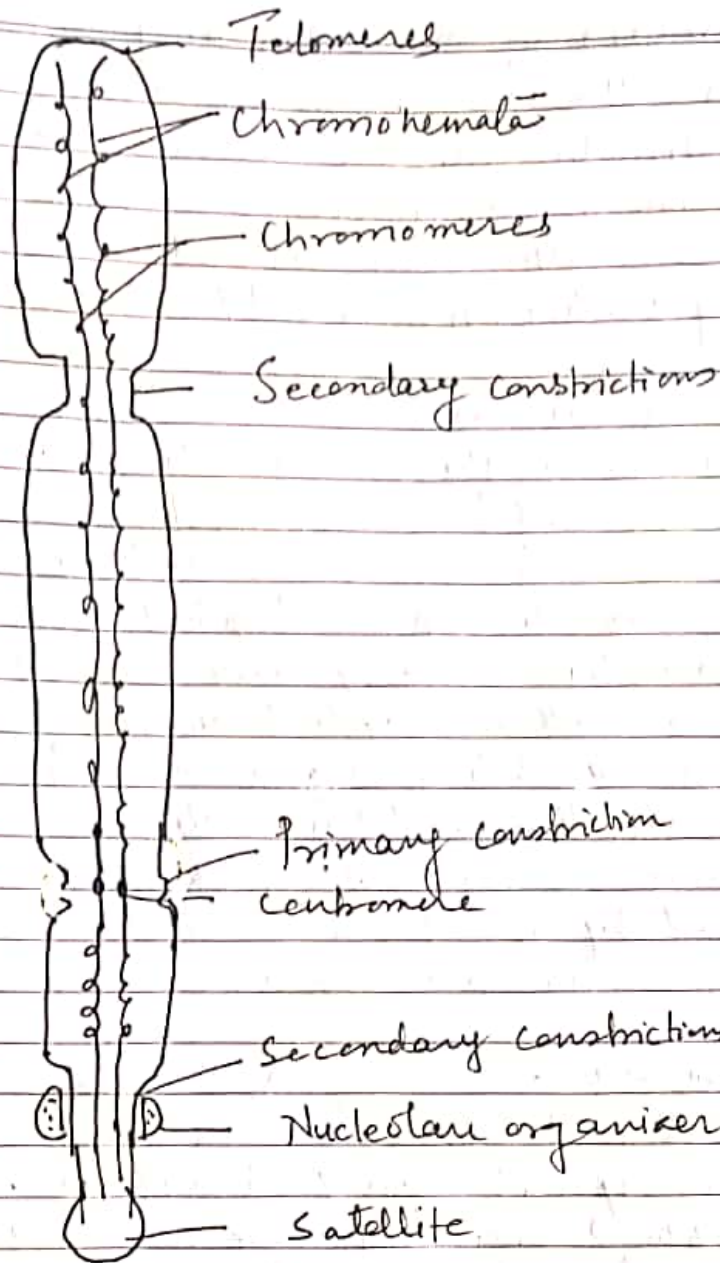 Telomeres
Chromonemata
Chromomeres
Secondary constrictions
Primary constriction
Centromere
Secondary constriction
Nucleolar organizer
Satellite